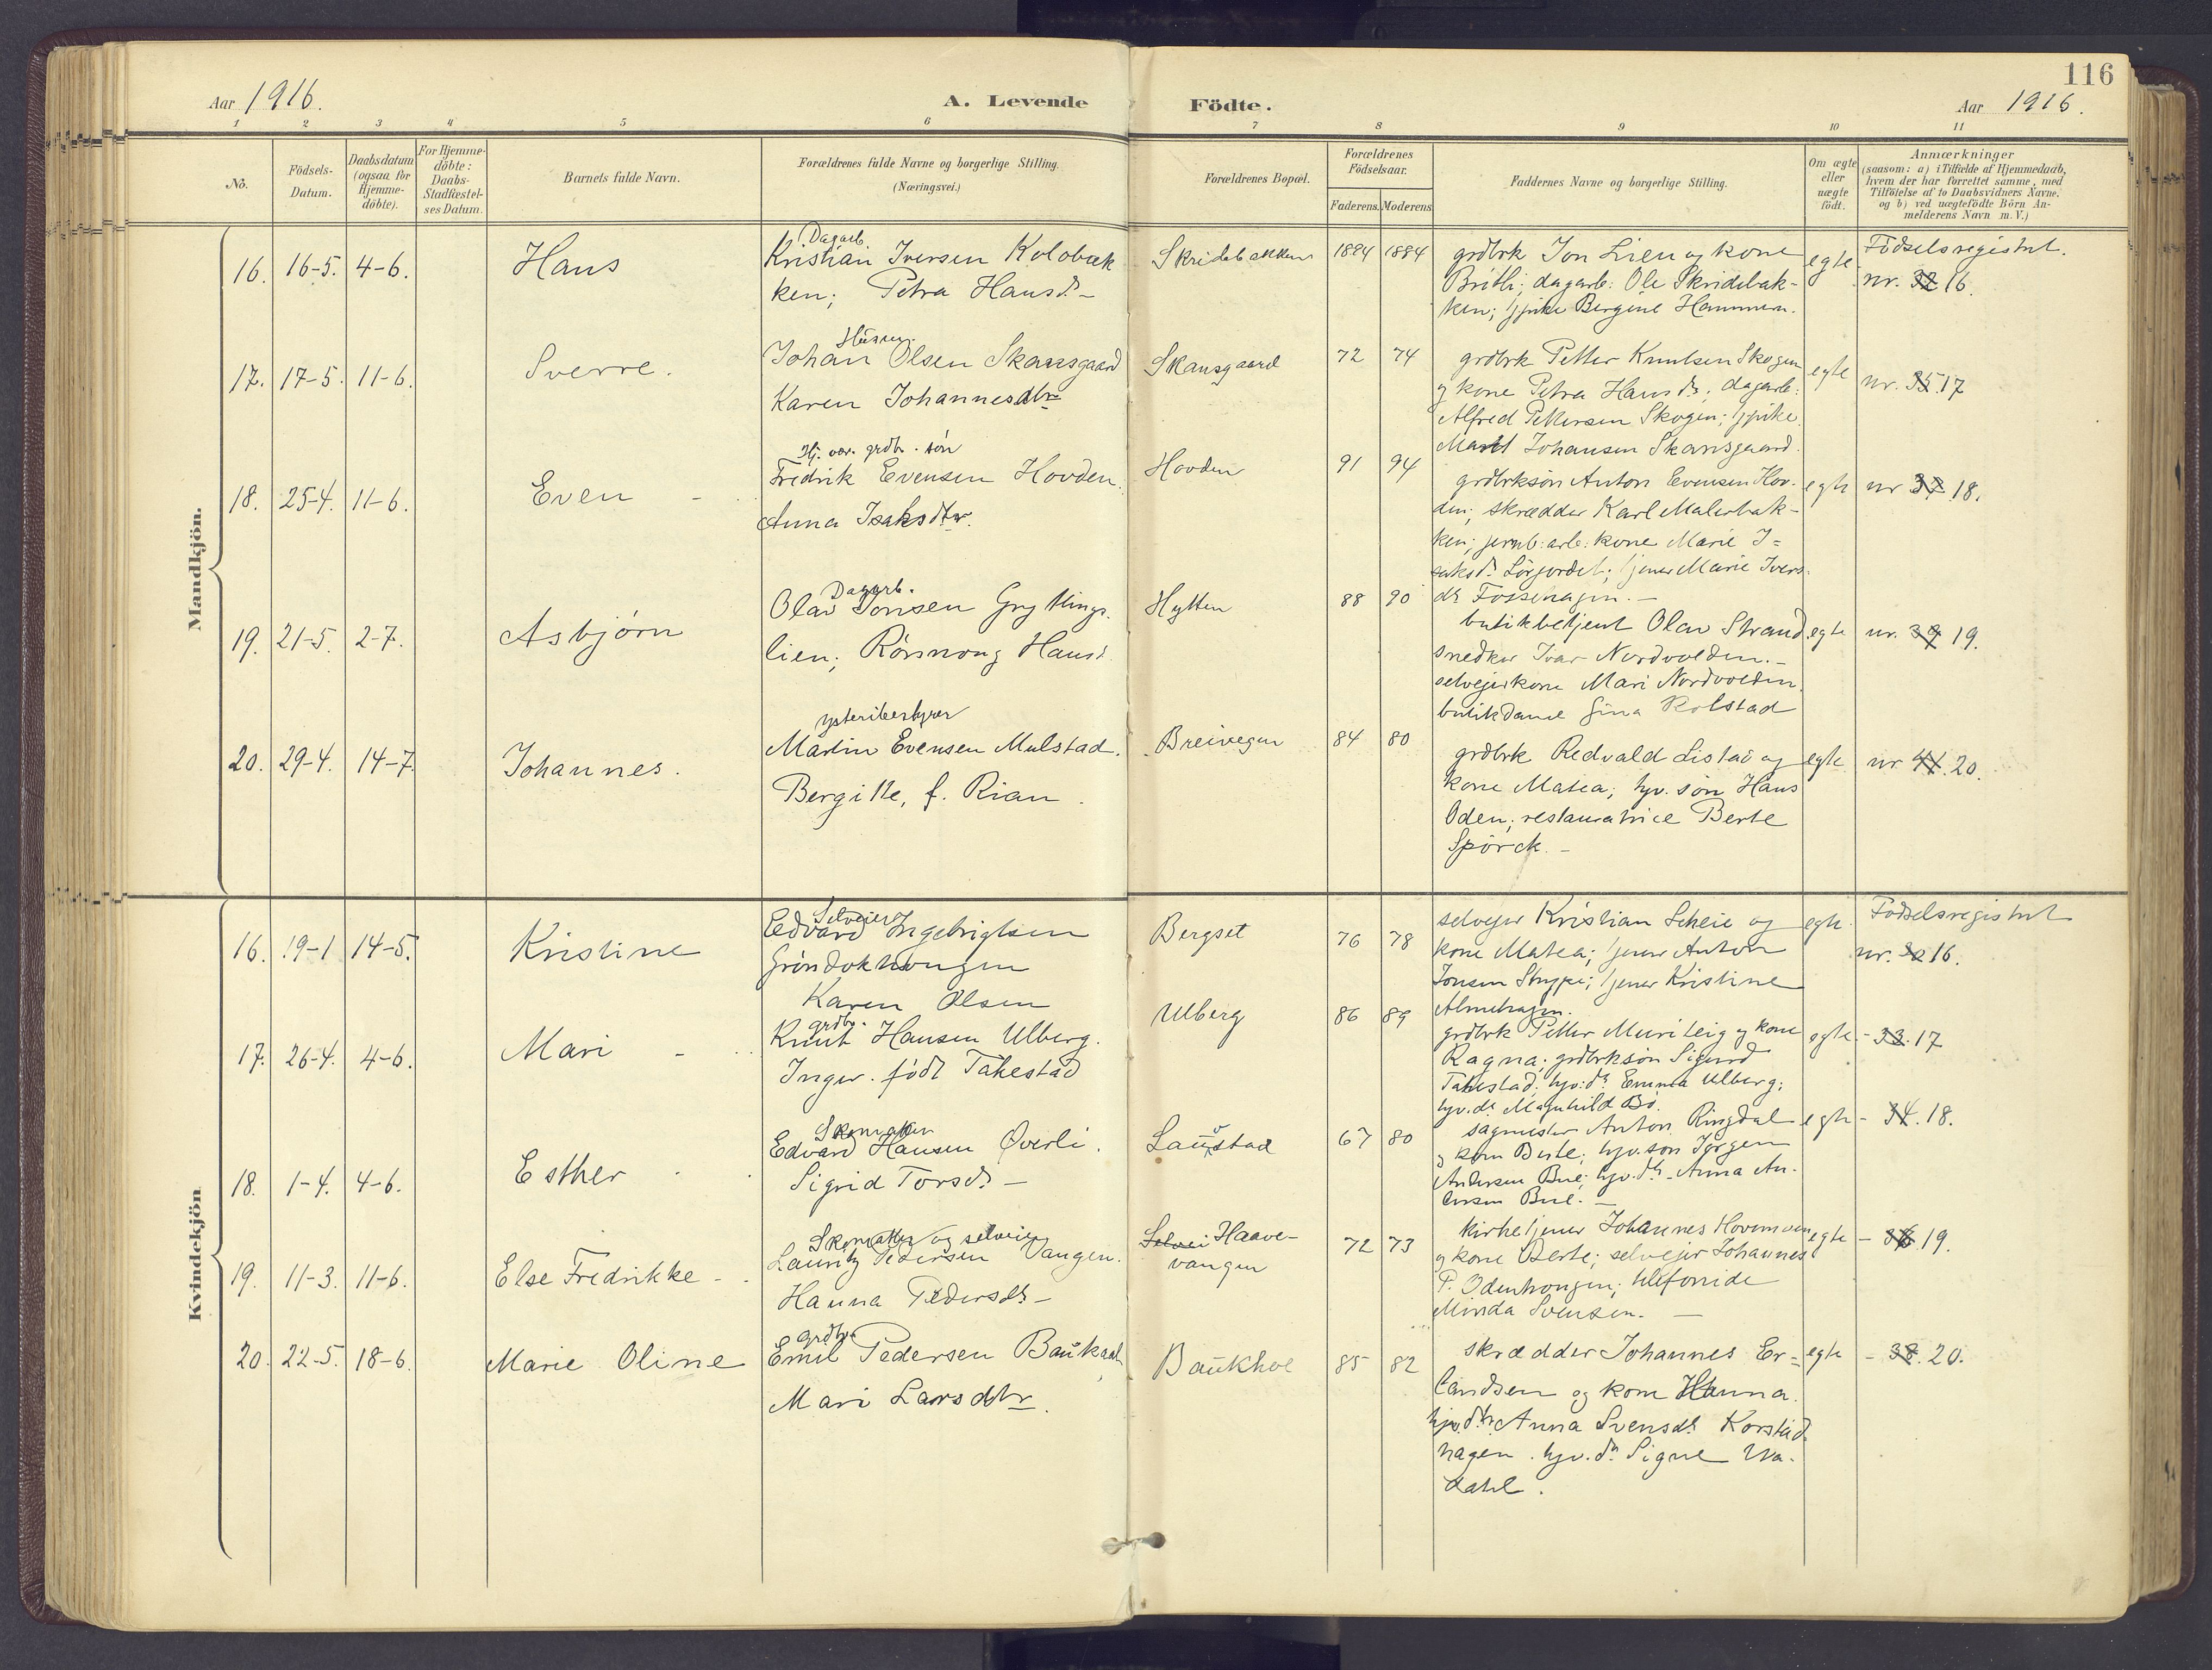 116
Aar 1916.
A. Levende Födte.
Aar 1916.
1 2 3 4 5 6 7 8 9 10 11
No.
Födsels-
Datum.
Daabsdatum
(ogsaa for
Hjemme-
döbte).
For Hjemme-
döbte:
Daabs-
Stadfæstel-
ses Datum.
Barnets fulde Navn.
Forældrenes fulde Navne og borgerlige Stilling.
(Næringsvei.)
Forældrenes Bopæl.
Forældrenes
Födselsaar.
Faderens. Moderens
Faddernes Navne og borgerlige Stilling.
Om ægte
eller
uægte
födt.
Anmærkninger
(saasom: a) i Tilfælde af Hjemmedaab,
hvem der har forrettet samme, med
Tilföielse af to Daabsvidners Navne.
og b) ved uægtefödte Börn An-
melderens Navn m. V.)
Mandkjön.
16. 16-5. 4-6. Hans
Dagarb.
Kristian Iversen Kolobæk
ken; Petra Hansd. -
Skridebakken 1884 1884
grdbrk Jon Lien og kone
Britli; dagarb: Ole Skridebak-
ken; pike Bergine Hammern.
egte
Födselsregistret.
nr. 32 16.
17. 17-5. 11-6. Sverre.
Husm.
Johan Olsen Skansgaard
Karen Johannesdtr
Skansgaard 72 74
grdbrk Petter Knutsen Skogen
og kone Petra Hansd.; dagarb:
Alfred Pettersen Skogen; pike
Marit Johansen Skansgaard.
egte nr. 35 17
18. 25-4. 11-6. Even -
Hj. vær. grdbr. søn
Fredrik Evensen Hovden.
Anna Isaksdtr.
Hovden 91 94
grdbrksøn Anton Evensen Hov-
den; skrædder Karl Malerbak-
ken; jernb: arb: kone Marie I=
saksd. Lörjordet; tjener Marie Ivers-
dr Fossehagen. -
egte nr 37 18.
19. 21-5. 2-7. Asbjørn
Dagarb.
Olav Jonsen Gryttings-
lien; Rønnoug Hansd.
Hytten 88 90
butikbetjent Olav Strand
snedker Ivar Nordvolden. -
selvejerkone Mari Nordvolden.
butikdame Gina Rolstad
egte nr. 39 19.
20. 29-4. 14-7. Johannes.
ysteribestyrer
Martin Evensen Mulstad.
Bergitte, f. Rian.
Breivegen 84 80
grdbrk Redvald Listad og
kone Matea; hjv. søn Hans
Oden; restauratrice Berte
Spörck. -
egte nr 41. 20.
Kvindekjön
16. 19-1 14-5. Kristine
Selveier
Edvard Ingebrigtsen
Gröndokhaugen
Karen Olsen
Bergset 76 78
selvejer Kristian Scheie og
kone Matea; tjener Anton
Jonsen Stryge; tjener Kristine
Almehagen.
egte.
Födselsregistret
nr. 30 16.
17. 26-4. 4-6. Mari -
grdbr.
Knut Hansen Ulberg.
Inger. født Takestad
Ulberg 86 89
grdbrk Petter Muriteig og kone
Ragna; grdbrksøn Sigurd
Takestad; hjv. dr. Emma Ulberg;
hjv. dr Magnhild Bö.
egte. - 33. 17
18. 1-4. 4-6. Esther
Skomaker
Edvard Hansen Överli.
Sigrid Torsd. -
Lauvstad 67 80
sagmester Anton Ringdal
og kone Berte; hjv. søn Jörgen
Andersen Bue; hjv. dtr. Anna An-
dersen Bue. -
egte - 34. 18.
19. 11-3. 11-6. Else Fredrikke -
Skomaker og selveier
Lauritz Pedersen Vangen.
Hanna Pedersdr. -
Selvei Haave-
vangen 72 73
kirketjener Johannes Hovemoen
og kone Berte; selvejer Johannes
P. Odenhongen; telefonide
Minda Svensen. -
egte - 36 19.
20. 22-5. 18-6. Marie Oline
grdbr.
Emil Pedersen Baukhol
Mari Larsdtr.
Baukhol 85 82
skrædder Johannes Er=
landsen og kone Hanna.
hjv. dtr. Anna Svensdr. Korstad-
hagen. hjv. dr. Signe Wa-
dahl.
egte - 38. 20.